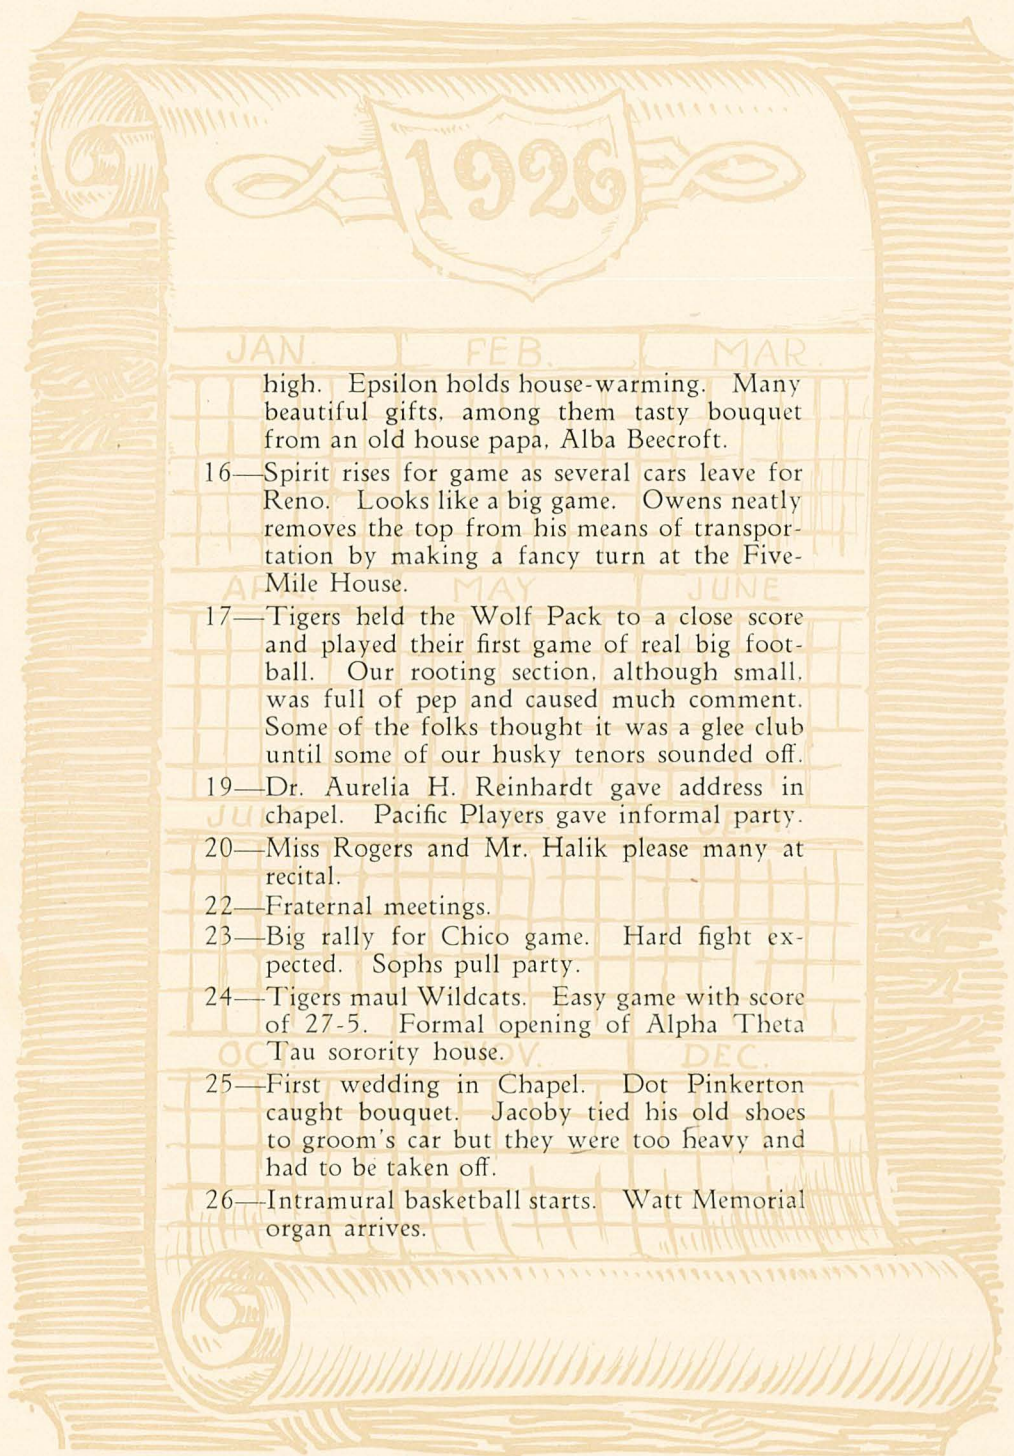 1926
JAN. FEB. MAR.
high. Epsilon holds house-warming. Many
beautiful gifts, among them tasty bouquet
from an old house papa, Alba Beecroft.
16—Spirit rises for game as several cars leave for
Reno. Looks like a big game. Owens neatly
removes the top from his means of transpor-
tation by making a fancy turn at the Five-
Mile House.
MAY JUNE
17—Tigers held the Wolf Pack to a close score
and played their first game of real big foot-
ball. Our rooting section, although small,
was full of pep and caused much comment.
Some of the folks thought it was a glee club
until some of our husky tenors sounded off.
19—Dr. Aurelia H. Reinhardt gave address in
chapel. Pacific Players gave informal party.
20—Miss Rogers and Mr. Halik please many at
recital.
22—Fraternal meetings.
23—Big rally for Chico game. Hard fight ex-
pected. Sophs pull party.
24—Tigers maul Wildcats. Easy game with score
of 27-5. Formal opening of Alpha Theta
Tau sorority house.
OCT. NOV. DEC.
25—First wedding in Chapel. Dot Pinkerton
caught bouquet. Jacoby tied his old shoes
to groom's car but they were too heavy and
had to be taken off.
26—Intramural basketball starts. Watt Memorial
organ arrives.